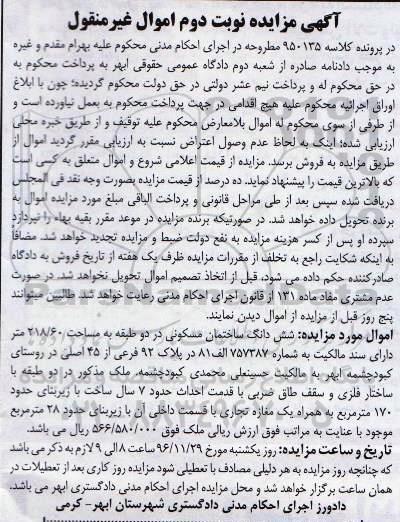 آگهی مزایده نوبت دوم اموال غیرمنقول
در پرونده کلاسه ۹۵۰۱۳۵ مطروحه در اجرای احکام مدنی محکوم علیه بهرام مقدم و غیره
به موجب دادنامه صادره از شعبه دوم دادگاه عمومی حقوقی ابهر به پرداخت محکوم به
در حق محکوم له و پرداخت نیم عشر دولتی در حق دولت محکوم گردیده؛ چون با ابلاغ
اوراق اجرائیه محکوم علیه هیچ اقدامی در جهت پرداخت محکوم به بعمل نیاورده است و
از طرفی از سوی محکوم له اموال بلامعارض محکوم علیه توقیف و از طریق خبره محلی
ارزیابی شده؛ اینک به لحاظ عدم وصول اعتراض نسبت به ارزیابی مقرر گردید اموال از
طریق مزایده به فروش برسد. مزایده از قیمت اعلامی شروع و اموال متعلق به کسی است
که بالاترین قیمت را پیشنهاد نماید. ده درصد از قیمت مزایده بصورت وجه نقد فی المجلس
دریافت شده سپس بعد از طی مراحل قانونی و پرداخت الباقی مبلغ مورد مزایده اموال به
برنده تحویل داده خواهد شد. در صورتیکه برنده مزایده در موعد مقرر بقیه بهاء را نپردازد
سپرده او پس از کسر هزینه مزایده به نفع دولت ضبط و مزایده تجدید خواهد شد. مضافاً
به اینکه شکایت راجع به تخلف از مقررات مزایده ظرف یک هفته از تاریخ فروش به دادگاه
صادرکننده حکم داده می شود، قبل از اتخاذ تصمیم اموال تحویل نخواهد شد. در صورت
عدم مشتری مفاد ماده ۱۳۱ از قانون اجرای احکام مدنی رعایت خواهد شد. طالبین میتوانند
پنج روز قبل از مزایده از اموال دیدن نمایند.
اموال مورد مزایده: شش دانگ ساختمان مسکونی در دو طبقه به مساحت ۲۱۸/۶۰ متر
دارای سند مالکیت به شماره ۷۵۷۳۸۷ الف۸۱ در پلاک ۹۲ فرعی از ۴۵ اصلی در روستای
کبودچشمه ابهر به مالکیت حسینعلی محمدی کبودچشمه، ملک مذکور در دو طبقه با
ساختار فلزی و سقف طاق ضربی با قدمت احداث حدود ۷ سال ساخت با زیربنای حدود
۱۷۰ مترمربع به همراه یک مغازه تجاری با قسمت داخلی آن با زیربنای حدود ۲۸ مترمربع
موجود با عنایت به مراتب فوق ارزش ریالی ملک فوق ۵۶۶/۵۸۰/۰۰۰ ریال می باشد.
تاریخ و ساعت مزایده: روز یکشنبه مورخ ۹۶/۱۱/۲۹ ساعت ۸ الی ۹ لازم به ذکر می باشد
که چنانچه روز مزایده به هر دلیلی مصادف با تعطیلی شود مزایده روز کاری بعد از تعطیلات در
همان ساعت برگزار خواهد شد و محل مزایده اجرای احکام مدنی دادگستری ابهر می باشد.
دادورز اجرای احکام مدنی دادگستری شهرستان ابهر- کرمی